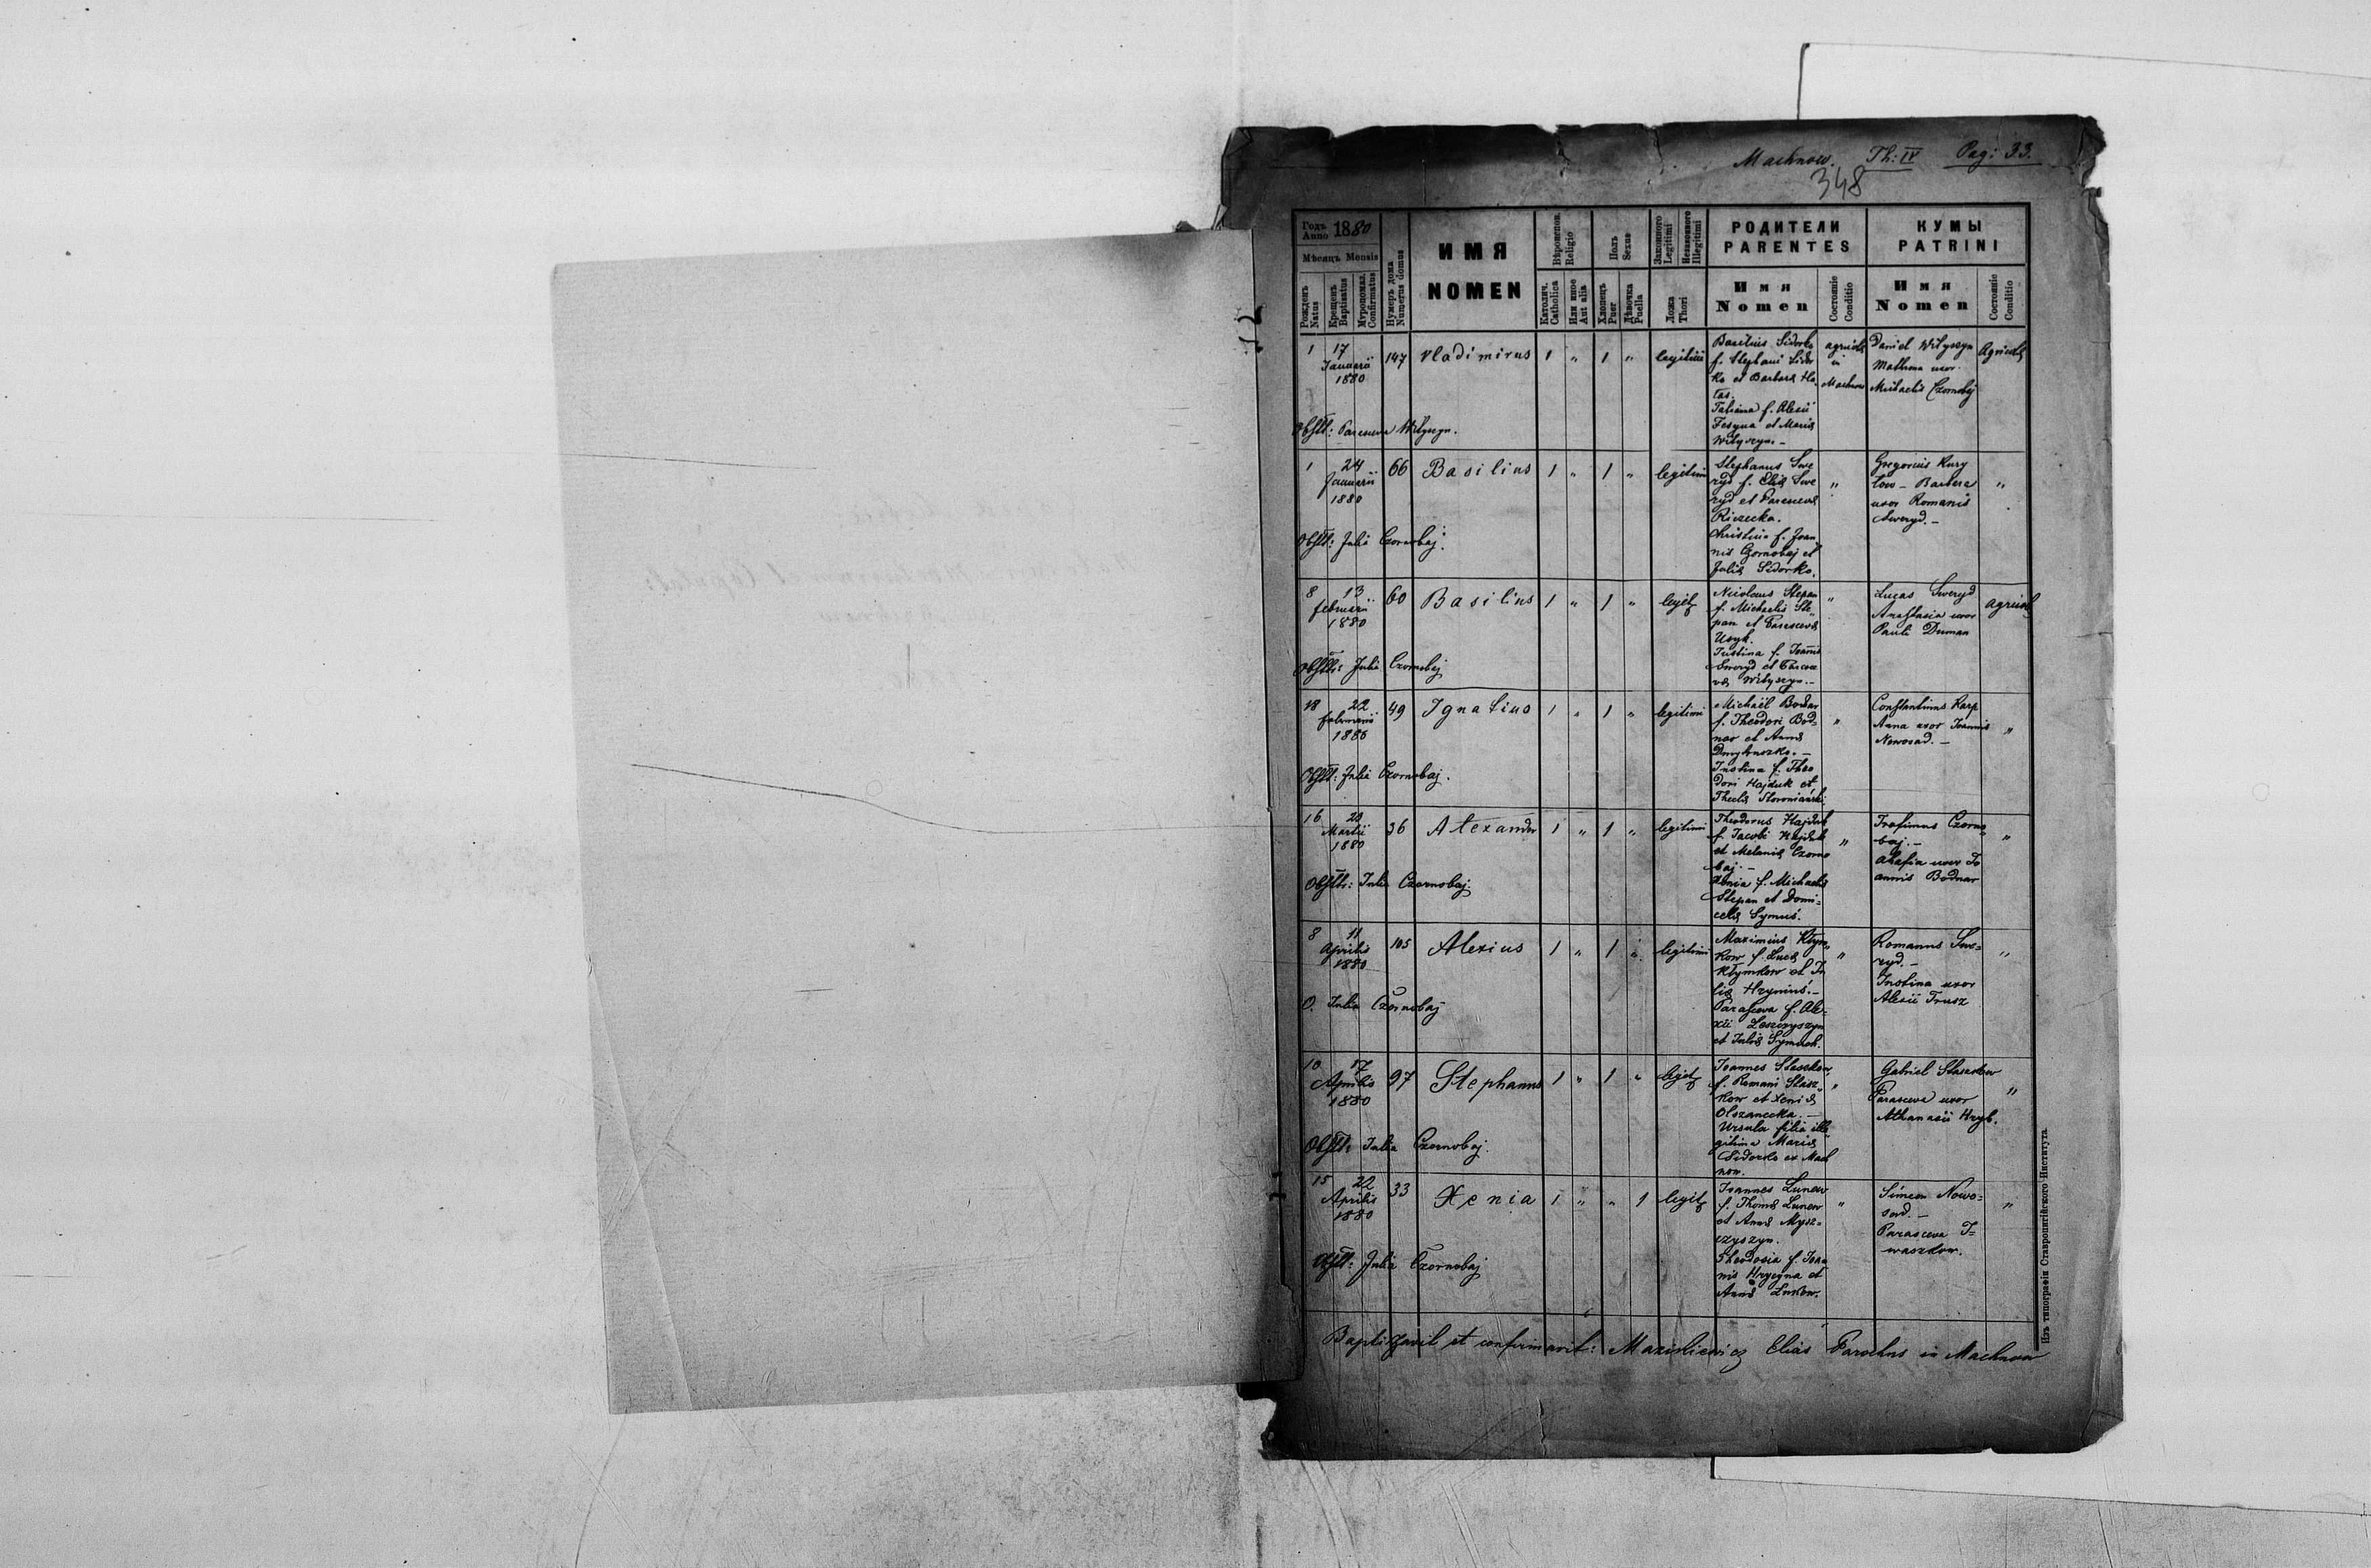 Machnow. Th: IV Pag: 33.
348
Годъ Anno 1880
Мѣсяцъ Mensis
Рожденъ Natus
Крещенъ Baptisatus
Муропомаз. Confirmatus
Нумеръ дома Numerus domus
ИМЯ
NOMEN
Вѣроисповѣд. Religio
Католич. Catholica
Или иное Aut alia
Полъ Sexus
Хлопецъ Puer
Дѣвочка Puella
Законного Legitimi
Незаконного Illegitimi
Ложа Thori
РОДИТЕЛИ
PARENTES
Имя
Nomen
Состояніе Conditio
КУМЫ
PATRINI
Имя
Nomen
Состояніе Conditio
1 17 Januarii 1880 147 Vladimirus 1 " 1 " legitimi
Basilius Sidorko
f. Stephani Sidor
ko et Barbara
Tatiana f. Alexii
Fesyna et Maria
Wityszyn. –
agricola
in
Machnow
Daniel Wityszyn
Mathrona uxor
Michaelis Czornobaj
Agricola
Obstt: Parasceva Wityszyn.
1 24 Januarii 1880 66 Basilius 1 " 1 " legitimi
Stephanus Swe
ryd f. Eliæ Swe
ryd et Parascevæ
Rizecka.
Christina f. Joan
nis Czornobaj et
Juliæ Sidorko.
"
Gregorius Kury
low – Barbara
uxor Romanis
Sweryd. –
"
Obstt: Julia Czornobaj.
8 13 februarii 1880 60 Basilius 1 " 1 " legit
Nicolaus Stepan
f. Michaelis Ste
pan et Parascevæ
Usyk.
Justina f. Joannis
Sweryd et Parasce
væ Wityszyn. –
"
Lucas Sweryd
Anastasia uxor
Pauli Duman
agricola
Obstt: Julia Czornobaj
18 22 februarii 1880 49 Ignatius 1 " 1 " legitimi
Michaël Bodnar
f. Theodori Bod-
nar et Annæ
Justina f. Theo
dori Hajduk et
Theclæ
"
Constantinus Karp
Anna uxor Joannis
Nowosad. –
"
Obstt: Julia Czornobaj.
16 Martii 1880 36 Alexander 1 " 1 " legitimi
Theodorus Hajduk
f. Jacobi Hajduk
et Melaniæ Czorno
baj. –
Xenia f. Michaelis
Stepan et Domi-
celæ Symuś.
"
Trofimus Czorno
baj. –
Agafia uxor Jo
annis Bodnar
"
Obstt: Julia Czornobaj
8 11 Aprilis 1880 105 Alexius 1 " 1 " legitimi
Maximius Kłym-
kow f. Lucæ
Kłymkow et Ju
liæ Hryniuś. –
Parasceva f. Ale-
xii Leszczyszyn
et Juliæ Symuch.
"
Romanus Swe-
ryd. –
Justina uxor
Alexii Trusz
"
O. Julia Czornobaj
10 17 Aprilis 1880 97 Stephanus 1 " 1 " legit
Joannes Staszkow
f. Romani Stasz-
kow et Xeniæ
Olszanecka. –
Ursula filia ille
gitima Mariæ
Sidorko ex Mach
now.
"
Gabriel Staszkow
Parasceva uxor
Athanasii Hryb.
"
Obstt: Julia Czornobaj.
15 22 Aprilis 1880 33 Xenia 1 " " 1 legit
Joannes Lunew
f. Thomæ Lunew
et Annæ Mysz-
czyszyn.
Theodosia f. Joan
nis Hrycyna et
Annæ Lukow.
"
Simeon Nowo-
sad. –
Parasceva I-
waszkow.
"
Obstt: Julia Czornobaj
Baptizavit et confirmavit: Elias Parochus in Machnow
Изъ типографіи Ставропигійского Института.